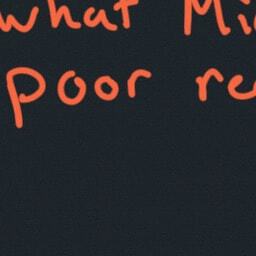 what Mi
poor re